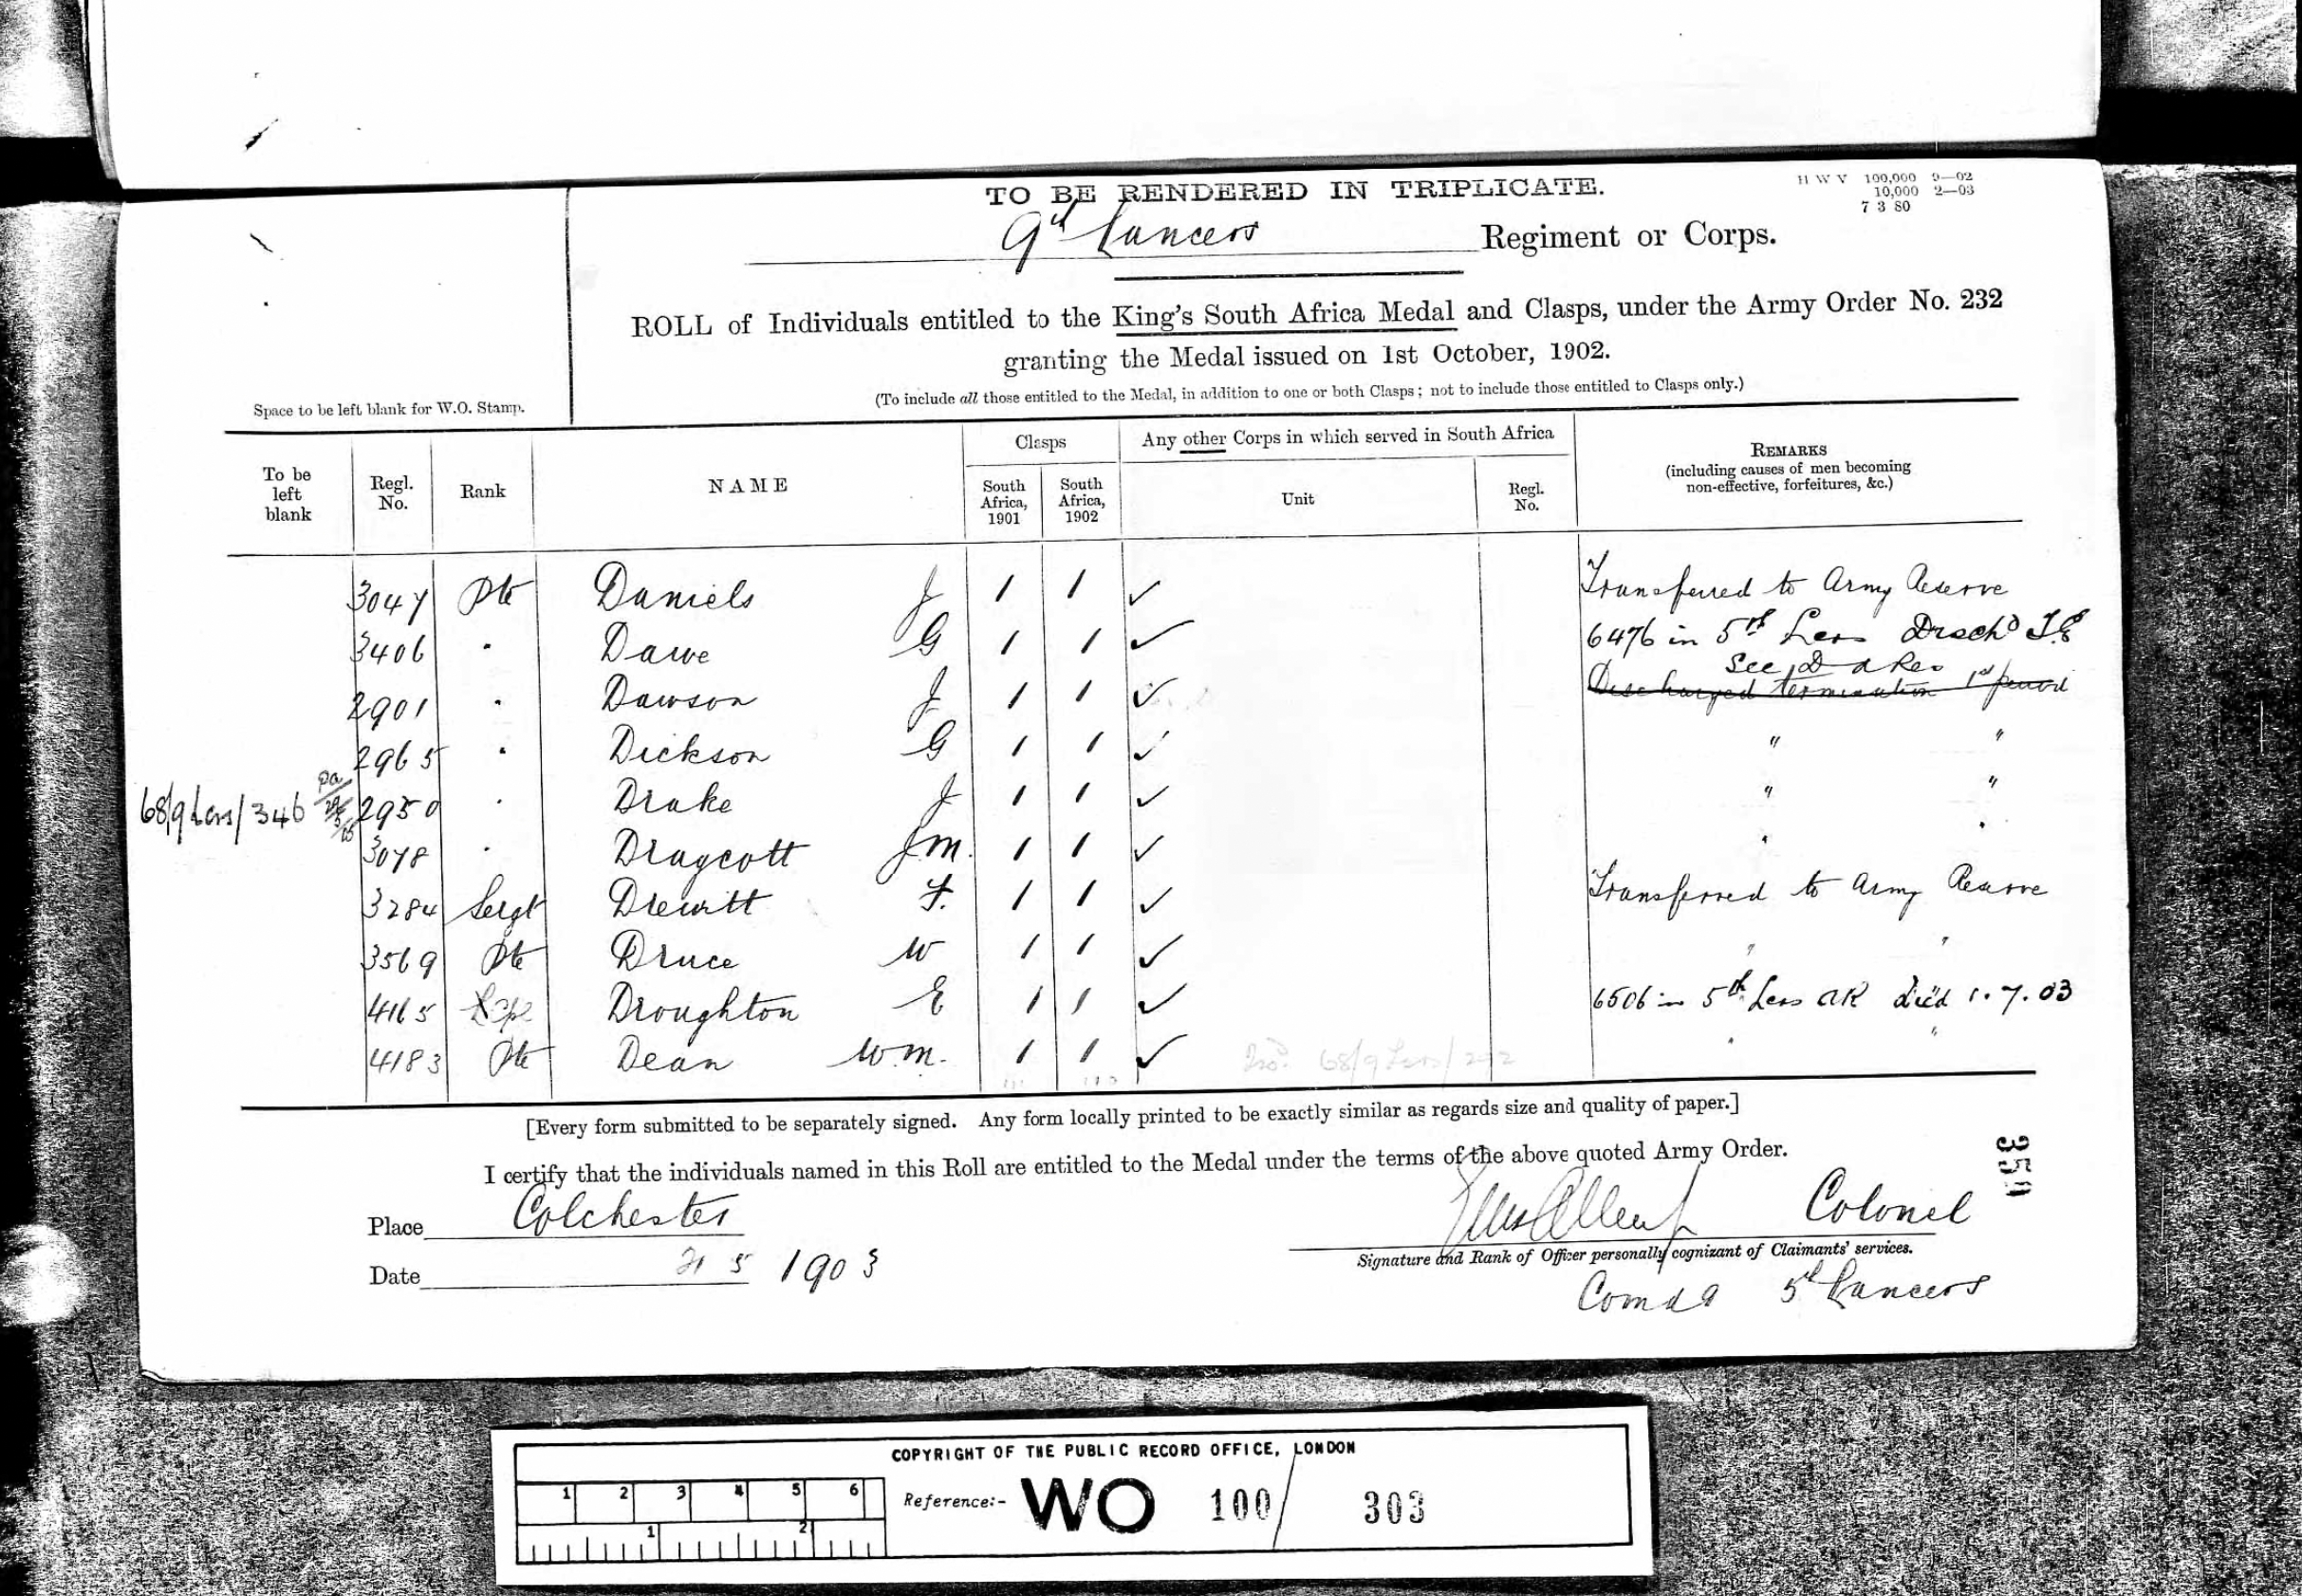 TO BE RENDERED IN TRIPLICATE.
H W V 100,000 9—02
10,000 2—03
7 3 80
9th Lancers Regiment or Corps.
ROLL of Individuals entitled to the King's South Africa Medal and Clasps, under the Army Order No. 232
granting the Medal issued on 1st October, 1902.
(To include all those entitled to the Medal, in addition to one or both Clasps; not to include those entitled to Clasps only.)
Space to be left blank for W.O. Stamp.
To be left blank Regl. No. Rank NAME Clasps South Africa, 1901 South Africa, 1902 Any other Corps in which served in South Africa Unit Regl. No. REMARKS (including causes of men becoming non-effective, forfeitures, &c.)
3047 Pte Daniels J 1 1 ✓ Transferred to Army Reserve
3406 " Dawe G 1 1 ✓ 6476 in 5th Lcrs Disch'd T.E
See D a Res
2901 " Dawson J 1 1 ✓ Discharged termination 1st period
2965 " Dickson G 1 1 ✓ " "
68/9 Lcrs/346 2950 " Drake J 1 1 ✓ " "
3078 " Draycott J M. 1 1 ✓ " "
3284 Sergt Drewitt F. 1 1 ✓ Transferred to Army Reserve
3569 Pte Druce W 1 1 ✓ " "
4165 Droughton E 1 1 ✓ 6506 in 5th Lcrs AR Died 1.7.03
4183 Pte Dean W.M. 1 1 ✓ 68/9 Lcrs/ " "
[Every form submitted to be separately signed. Any form locally printed to be exactly similar as regards size and quality of paper.]
I certify that the individuals named in this Roll are entitled to the Medal under the terms of the above quoted Army Order.
359
Place Colchester
Colonel
Signature and Rank of Officer personally cognizant of Claimants' services.
Date 21 5 1903
Comdg 5th Lancers
COPYRIGHT OF THE PUBLIC RECORD OFFICE, LONDON
1 2 3 4 5 6
Reference:- WO 100/ 303
1 2